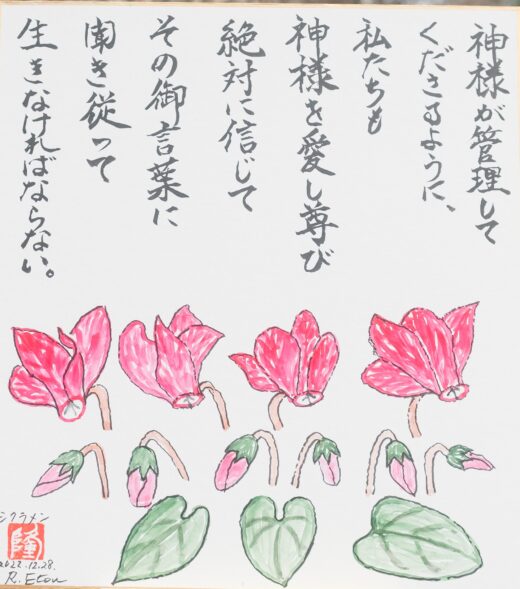 神様が管理して
くださるように、
私たちも
神様を愛し尊び
絶対に信じて
その御言葉に
聞き従って
生きなければならない。
シクラメン
隆
2022.12.28.
R. Etou